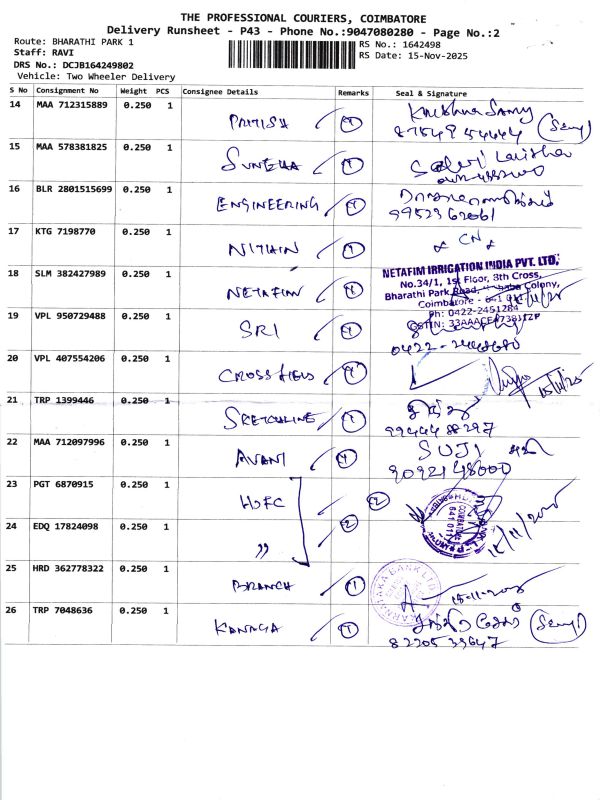 THE PROFESSIONAL COURIERS, COIMBATORE
Delivery Runsheet - P43 - Phone No.:9047080280 - Page No.:2
Route: BHARATHI PARK 1
RS No.: 1642498
Staff: RAVI
RS Date: 15-Nov-2025
DRS No.: DCJB164249802
Vehicle: Two Wheeler Delivery
S No Consignment No Weight PCS Consignee Details Remarks Seal & Signature
14 MAA 712315889 0.250 1 PRITISH 1 Krishna Samy
87549 54444
15 MAA 578381825 0.250 1 SUNEHA 1
16 BLR 2801515699 0.250 1 ENGINEERING 1
9952362061
17 KTG 7198770 0.250 1 NITHIN 1 CN
18 SLM 382427989 0.250 1 NETAFIM 1
NETAFIM IRRIGATION INDIA PVT. LTD.
No.34/1, 1st Floor, 8th Cross,
Bharathi Park Road, Colony,
Coimbatore - 641 011.
Ph: 0422-2451284
19 VPL 950729488 0.250 1 SRI 1
20 VPL 407554206 0.250 1 CROSSFIELDS 1
15/11/25
21 TRP 1399446 0.250 1 SKETCHLINE 1
99444 88297
22 MAA 712097996 0.250 1 AVANI 1 SUJI
9092148000
23 PGT 6870915 0.250 1 HDFC 2
24 EDQ 17824098 0.250 1 " 2
25 HRD 362778322 0.250 1 BRANCH 1
KARNATAKA BANK LTD.
15-11-2025
26 TRP 7048636 0.250 1 KANAGA 1
82205 33647